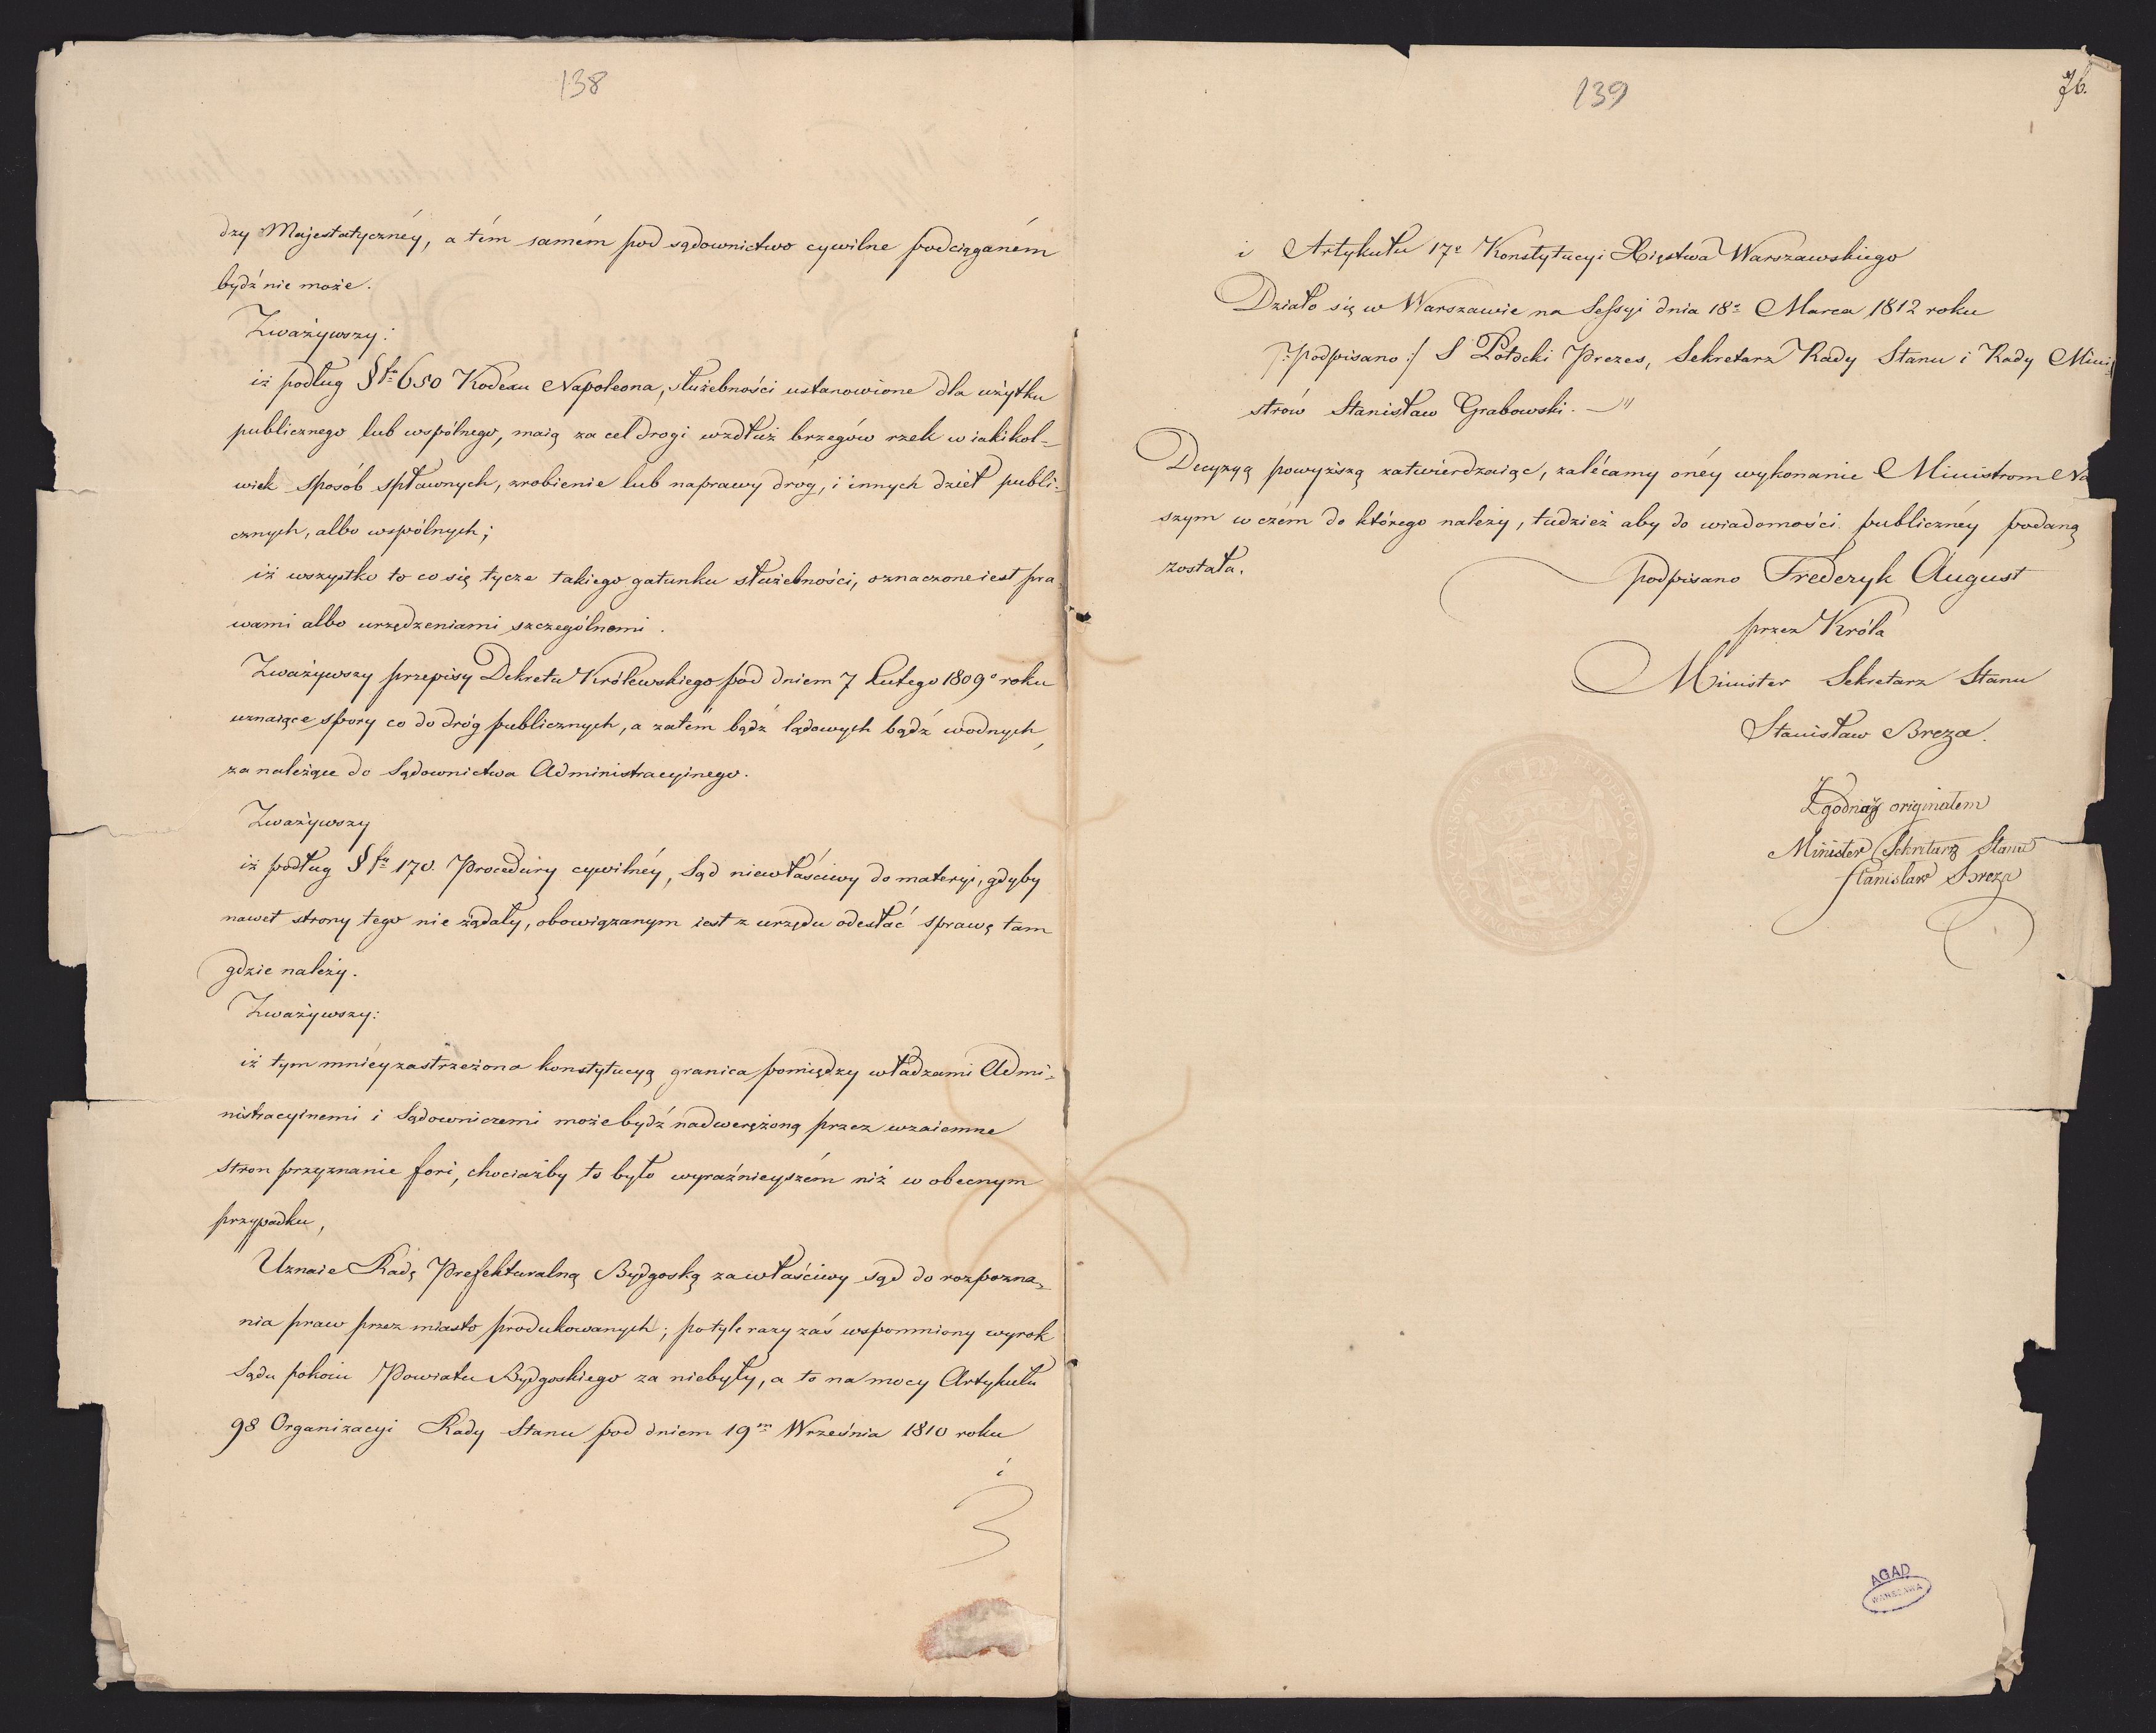 138
dzy Majestatycznéy, a tém samém pod sądownictwo cywilne podciąganém
bydź nie może.
Zważywszy:
iż podług §fu 650 Kodexu Napoleona, służebności ustanowione dla użytku
publicznego lub wspólnego, maią za cel drogi wzdłuż brzegów rzek w iakikol=
wiek sposób spławnych, zrobienie lub naprawy dróg, i innych dzieł publi=
cznych, albo wspólnych;
iż wszystko to co się tycze takiego gatunku służebności, oznaczone iest pra=
wami albo urzędzeniami szczególnemi.
Zważywszy przepisy Dekretu Królewskiego pod dniem 7 Lutego 1809o roku
uznaiące spory co do dróg publicznych, a zatém bądź lądowych bądź wodnych,
za należące do Sądownictwa Administracyinego.
Zważywszy
iż podług §fu 170. Procedury cywilnéy, Sąd niewłaściwy do materyi, gdyby
nawet strony tego nie żądały, obowiązanym iest z urzędu odesłać sprawę tam
gdzie należy.
Zważywszy:
iż tym mniéy zastrzeżona konstytucyą granica pomiędzy władzami Admi=
nistracyinemi i Sądowniczemi może bydź nadwerężoną przez wzaiemne
stron przyznanie fori, chociażby to było wyraźnieyszém niż w obecnym
przypadku,
Uznaie Radę Prefekturalną Bydgoską za właściwy sąd do rozpozna=
nia praw przez miasto produkowanych; potyle razy zaś wspomniony wyrok
Sądu pokoiu Powiatu Bydgoskiego za niebyły, a to na mocy Artykułu
98 Organizacyi Rady Stanu pod dniem 19m Września 1810 roku
i
139
76.
i Artykułu 17o Konstytucyi Xięstwa Warszawskiego
Działo się w Warszawie na Sessyi dnia 18o Marca 1812 roku
/:podpisano:/ S Potocki Prezes, Sekretarz Rady Stanu i Rady Mini=
strów Stanisław Grabowski. — "
Decyzyą powyższą zatwierdzaiąc, zalécamy onéy wykonanie Ministrom Na
szym w czém do którego należy, tudzież aby do wiadomości publicznéy podaną
została.
podpisano Frederyk August
przez Króla
Minister Sekretarz Stanu
Stanisław Breza.
Zgodno z originałem
Minister Sekretarz Stanu
Stanisław Breza
AGAD
WARSZAWA